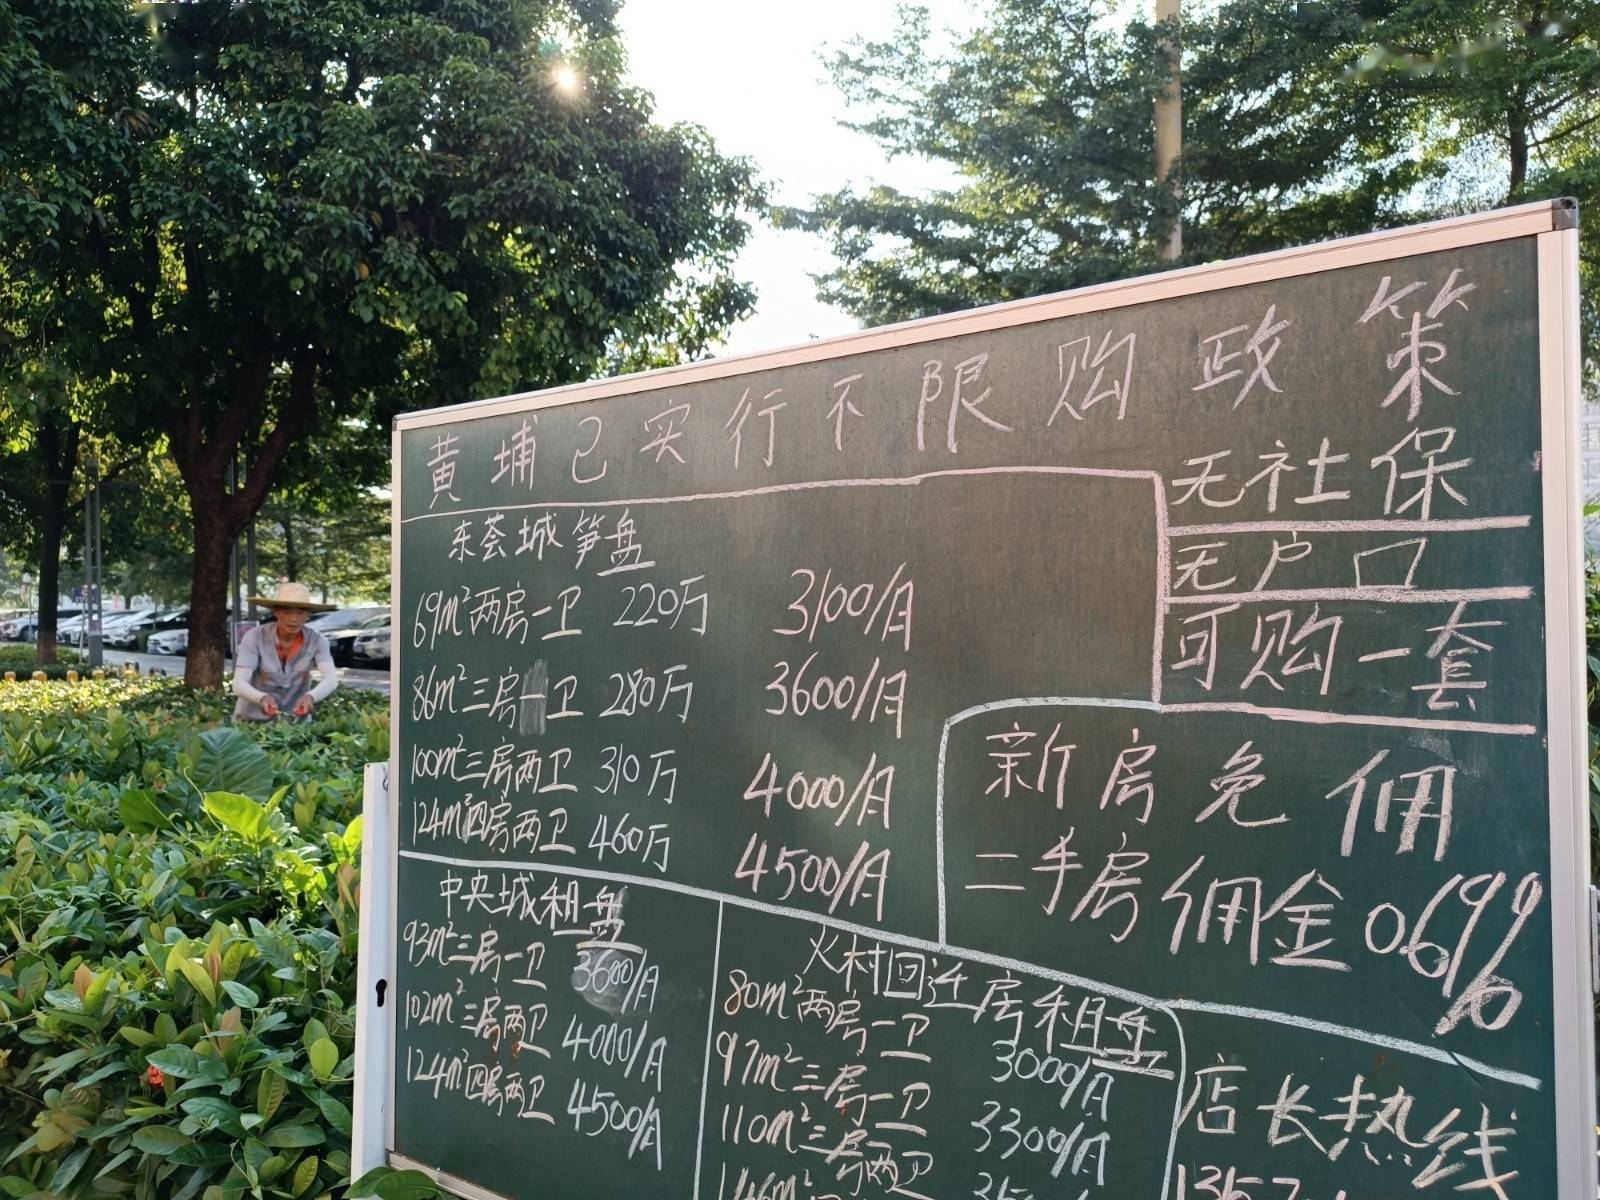 黄埔已实行不限购政策
无社保
无户口
可购一套
东荟城笋盘
69m²两房一卫 220万 3100/月
86m²三房一卫 280万 3600/月
100m²三房两卫 310万 4000/月
124m²四房两卫 460万 4500/月
新房免佣
二手房佣金0.699%
中央城租盘
93m²三房一卫 3600/月
102m²三房两卫 4000/月
124m²四房两卫 4500/月
火村回迁房租盘
80m²两房一卫 3000/月
97m²三房一卫 3300/月
110m²三房两卫
店长热线